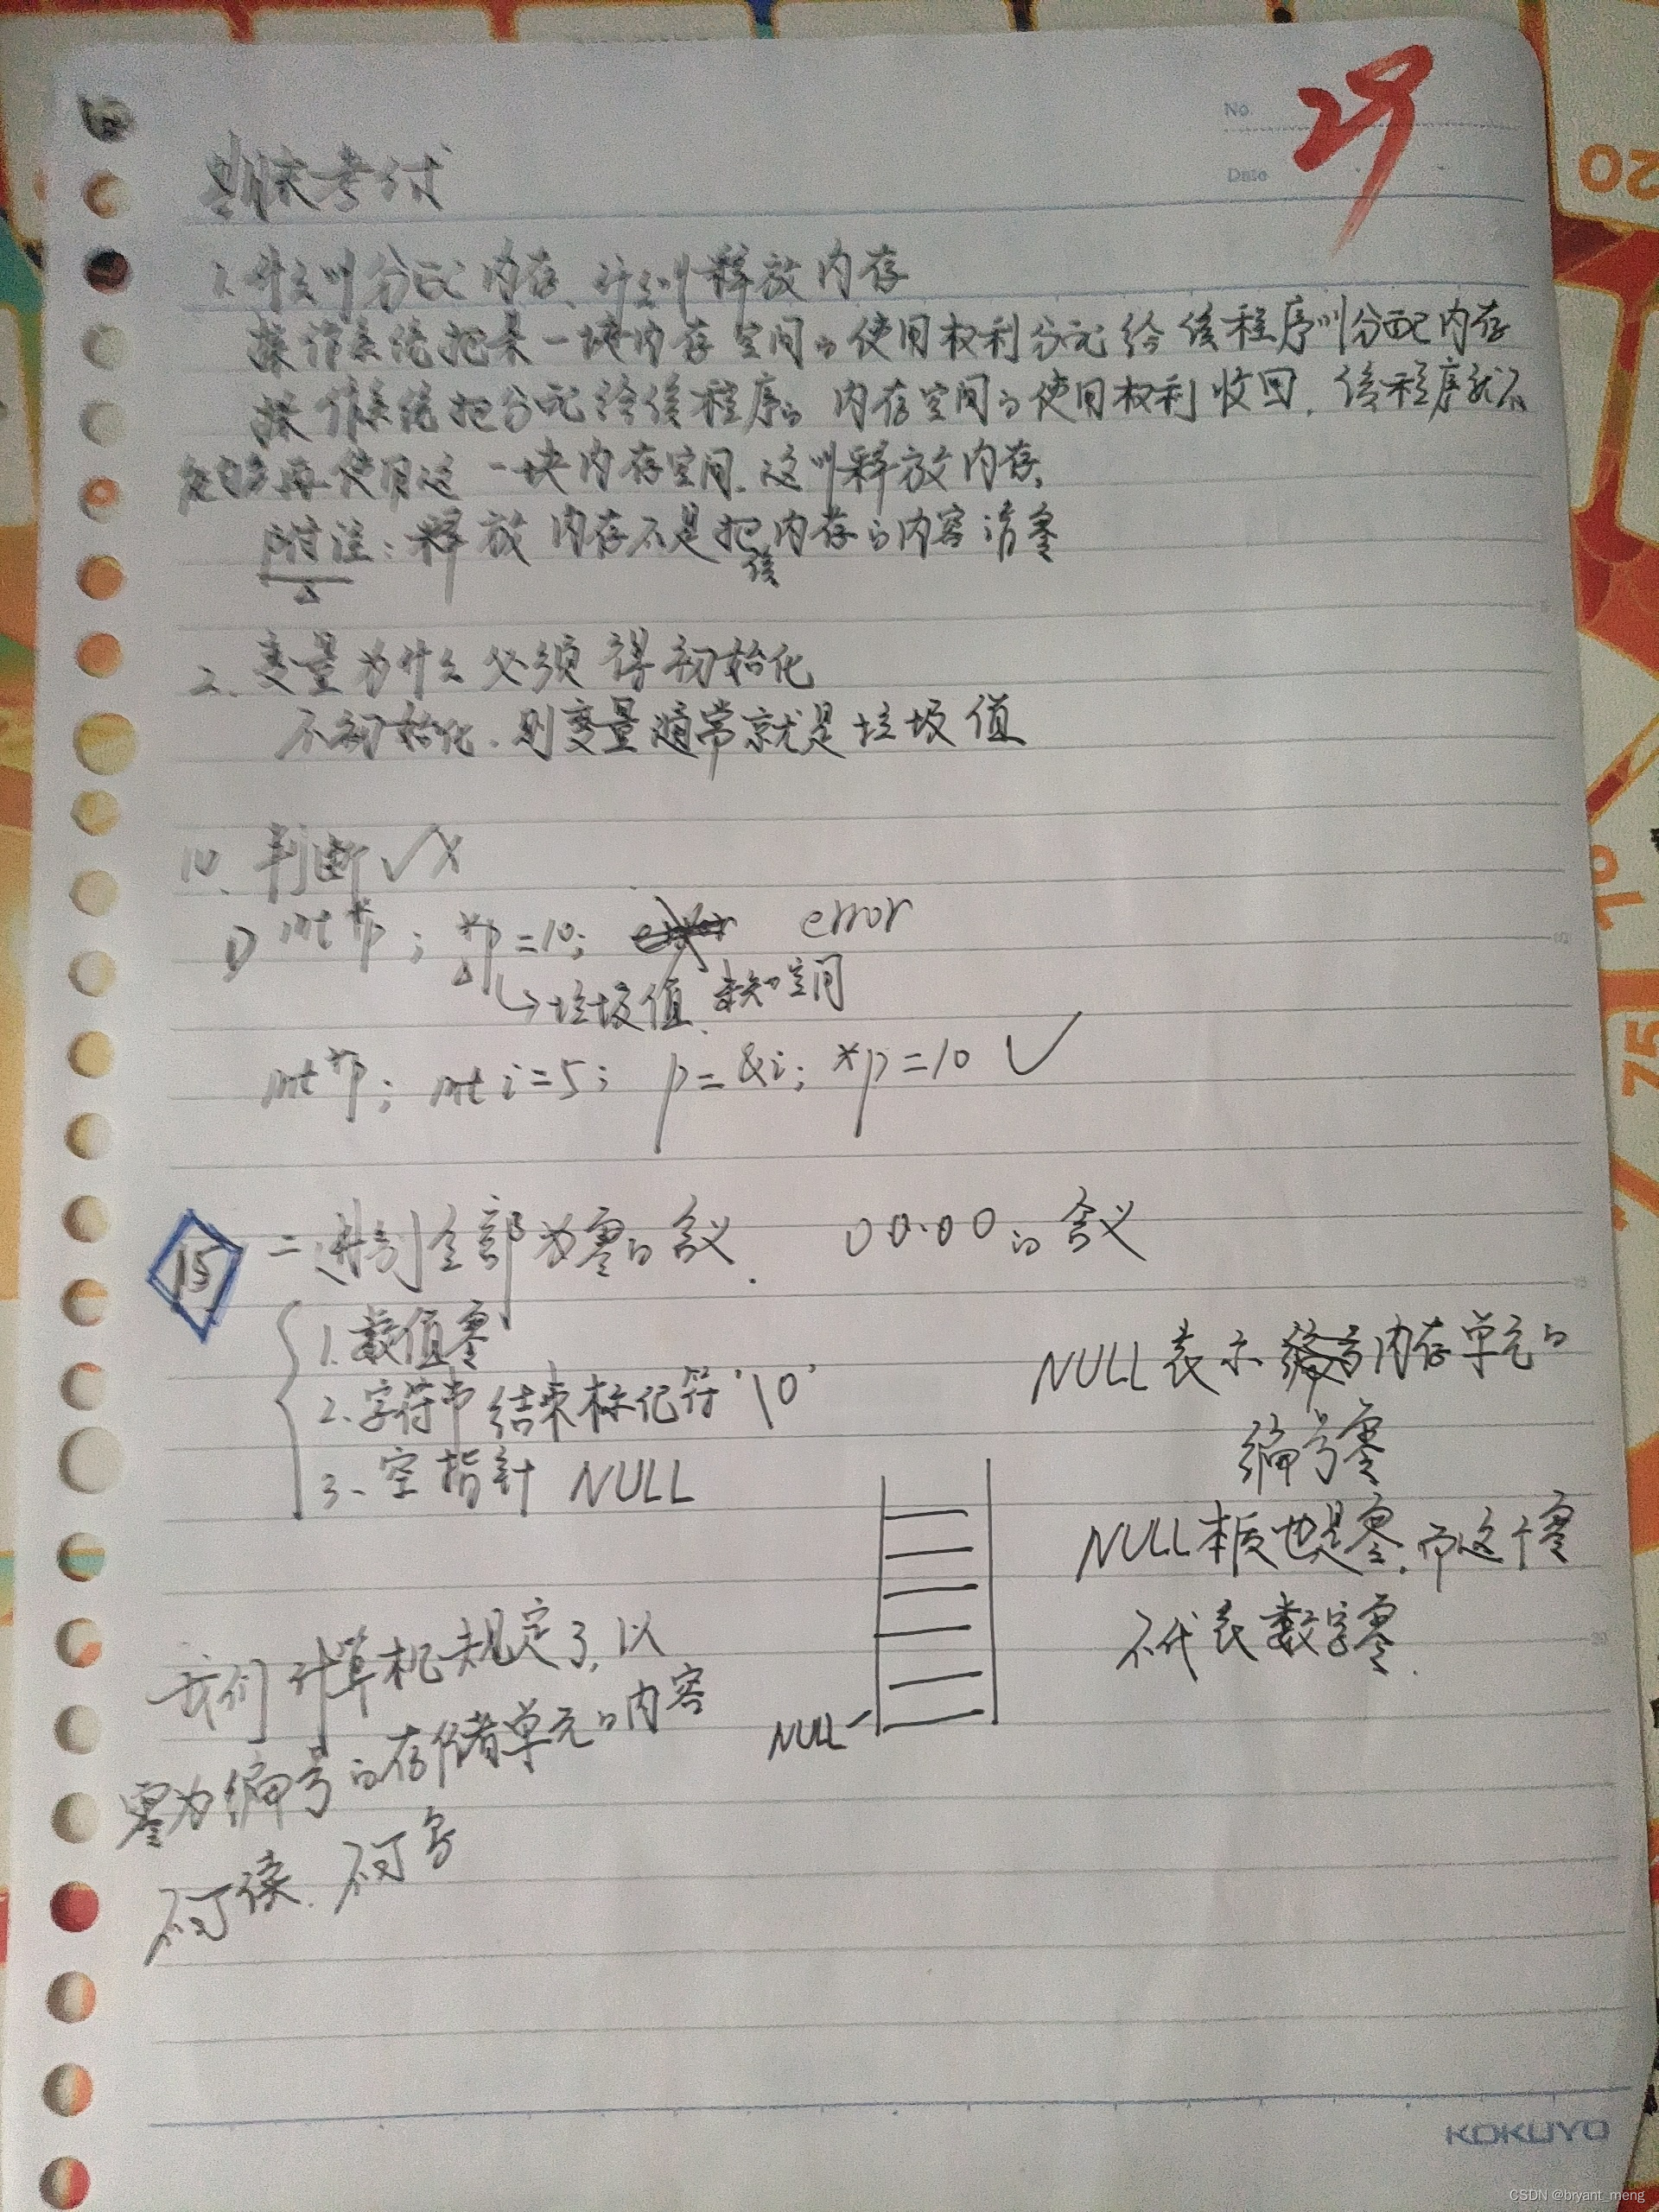 No.
29
Date
期末考试
1.什么叫分配内存、什么叫释放内存
操作系统把某一块内存空间的使用权利分配给该程序叫分配内存
操作系统把分配给该程序的内存空间的使用权利收回,该程序就不
能够再使用这一块内存空间.这叫释放内存.
附注:释放内存不是把该内存的内容清零
2.变量为什么必须得初始化
不初始化.则变量通常就是垃圾值
10.判断√X
① int *p; *p=10; error
→垃圾值.未知空间
int *p; int i=5; p=&i; *p=10 √
15 二进制全部为零的含义. 00..00的含义
1.数值零
2.字符串结束标记符'\0'
3、空指针 NULL
NULL表示内存单元的
编号零
NULL本质也是零.而这个零
不代表数字零.
NULL
我们计算机规定了,以
零为编号的存储单元的内容
不可读.不可写
KOKUYO
CSDN @bryant_meng